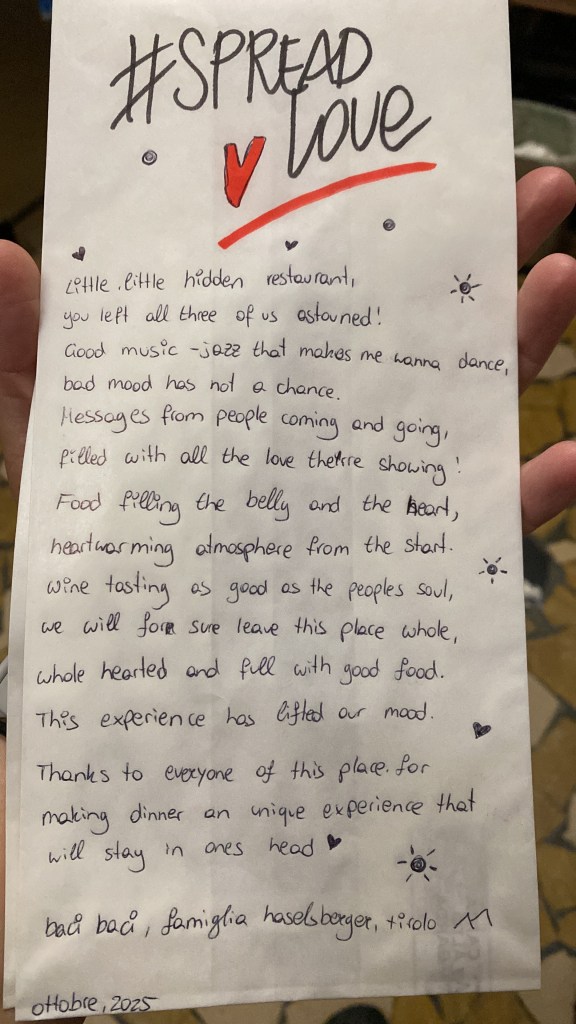 #SPREAD
love
Little, little hidden restaurant,
you left all three of us astouned!
Good music - jazz that makes me wanna dance,
bad mood has not a chance.
Messages from people coming and going,
filled with all the love there showing!
Food filling the belly and the heart,
heartwarming atmosphere from the start.
Wine tasting as good as the peoples soul,
we will for sure leave this place whole,
whole hearted and full with good food.
This experience has lifted our mood.
Thanks to everyone of this place for
making dinner an unique experience that
will stay in ones head ♥
baci baci, famiglia haselsberger, tirolo
ottobre, 2025